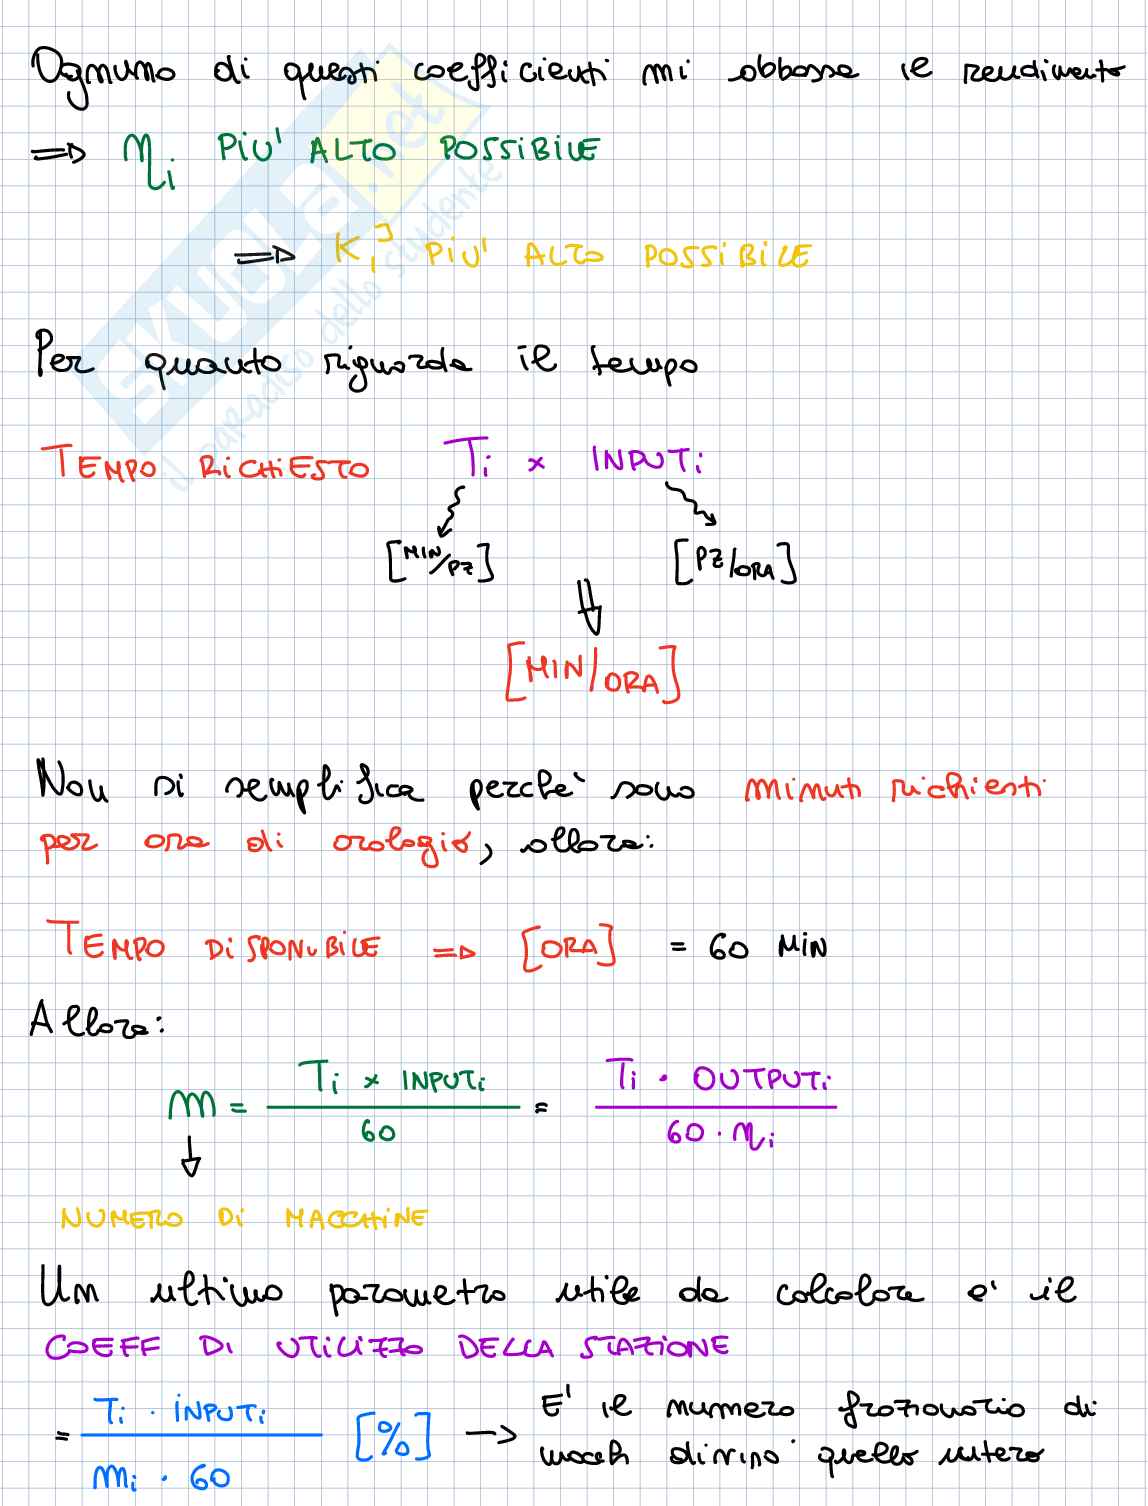 Ognuno di questi coefficienti mi abbassa il rendimento
⇒ ηi PIU' ALTO POSSIBILE
⇒ Ki^J PIU' ALTO POSSIBILE
Per quanto riguarda il tempo
TEMPO RICHIESTO Ti x INPUTi
[MIN/PZ] [PZ/ORA]
⇓
[MIN/ORA]
Non si semplifica perchè sono minuti richiesti
per ora di orologio, allora:
TEMPO DISPONIBILE ⇒ [ORA] = 60 MIN
Allora:
m = Ti x INPUTi / 60 = Ti · OUTPUTi / 60 · ηi
↓
NUMERO DI MACCHINE
Un ultimo parametro utile da calcolare e' il
COEFF DI UTILIZZO DELLA STAZIONE
= Ti · INPUTi / mi · 60 [%] → E' il numero frazionatio di
macch diviso quello intero
SKUOLA.net
il paradiso dello studente